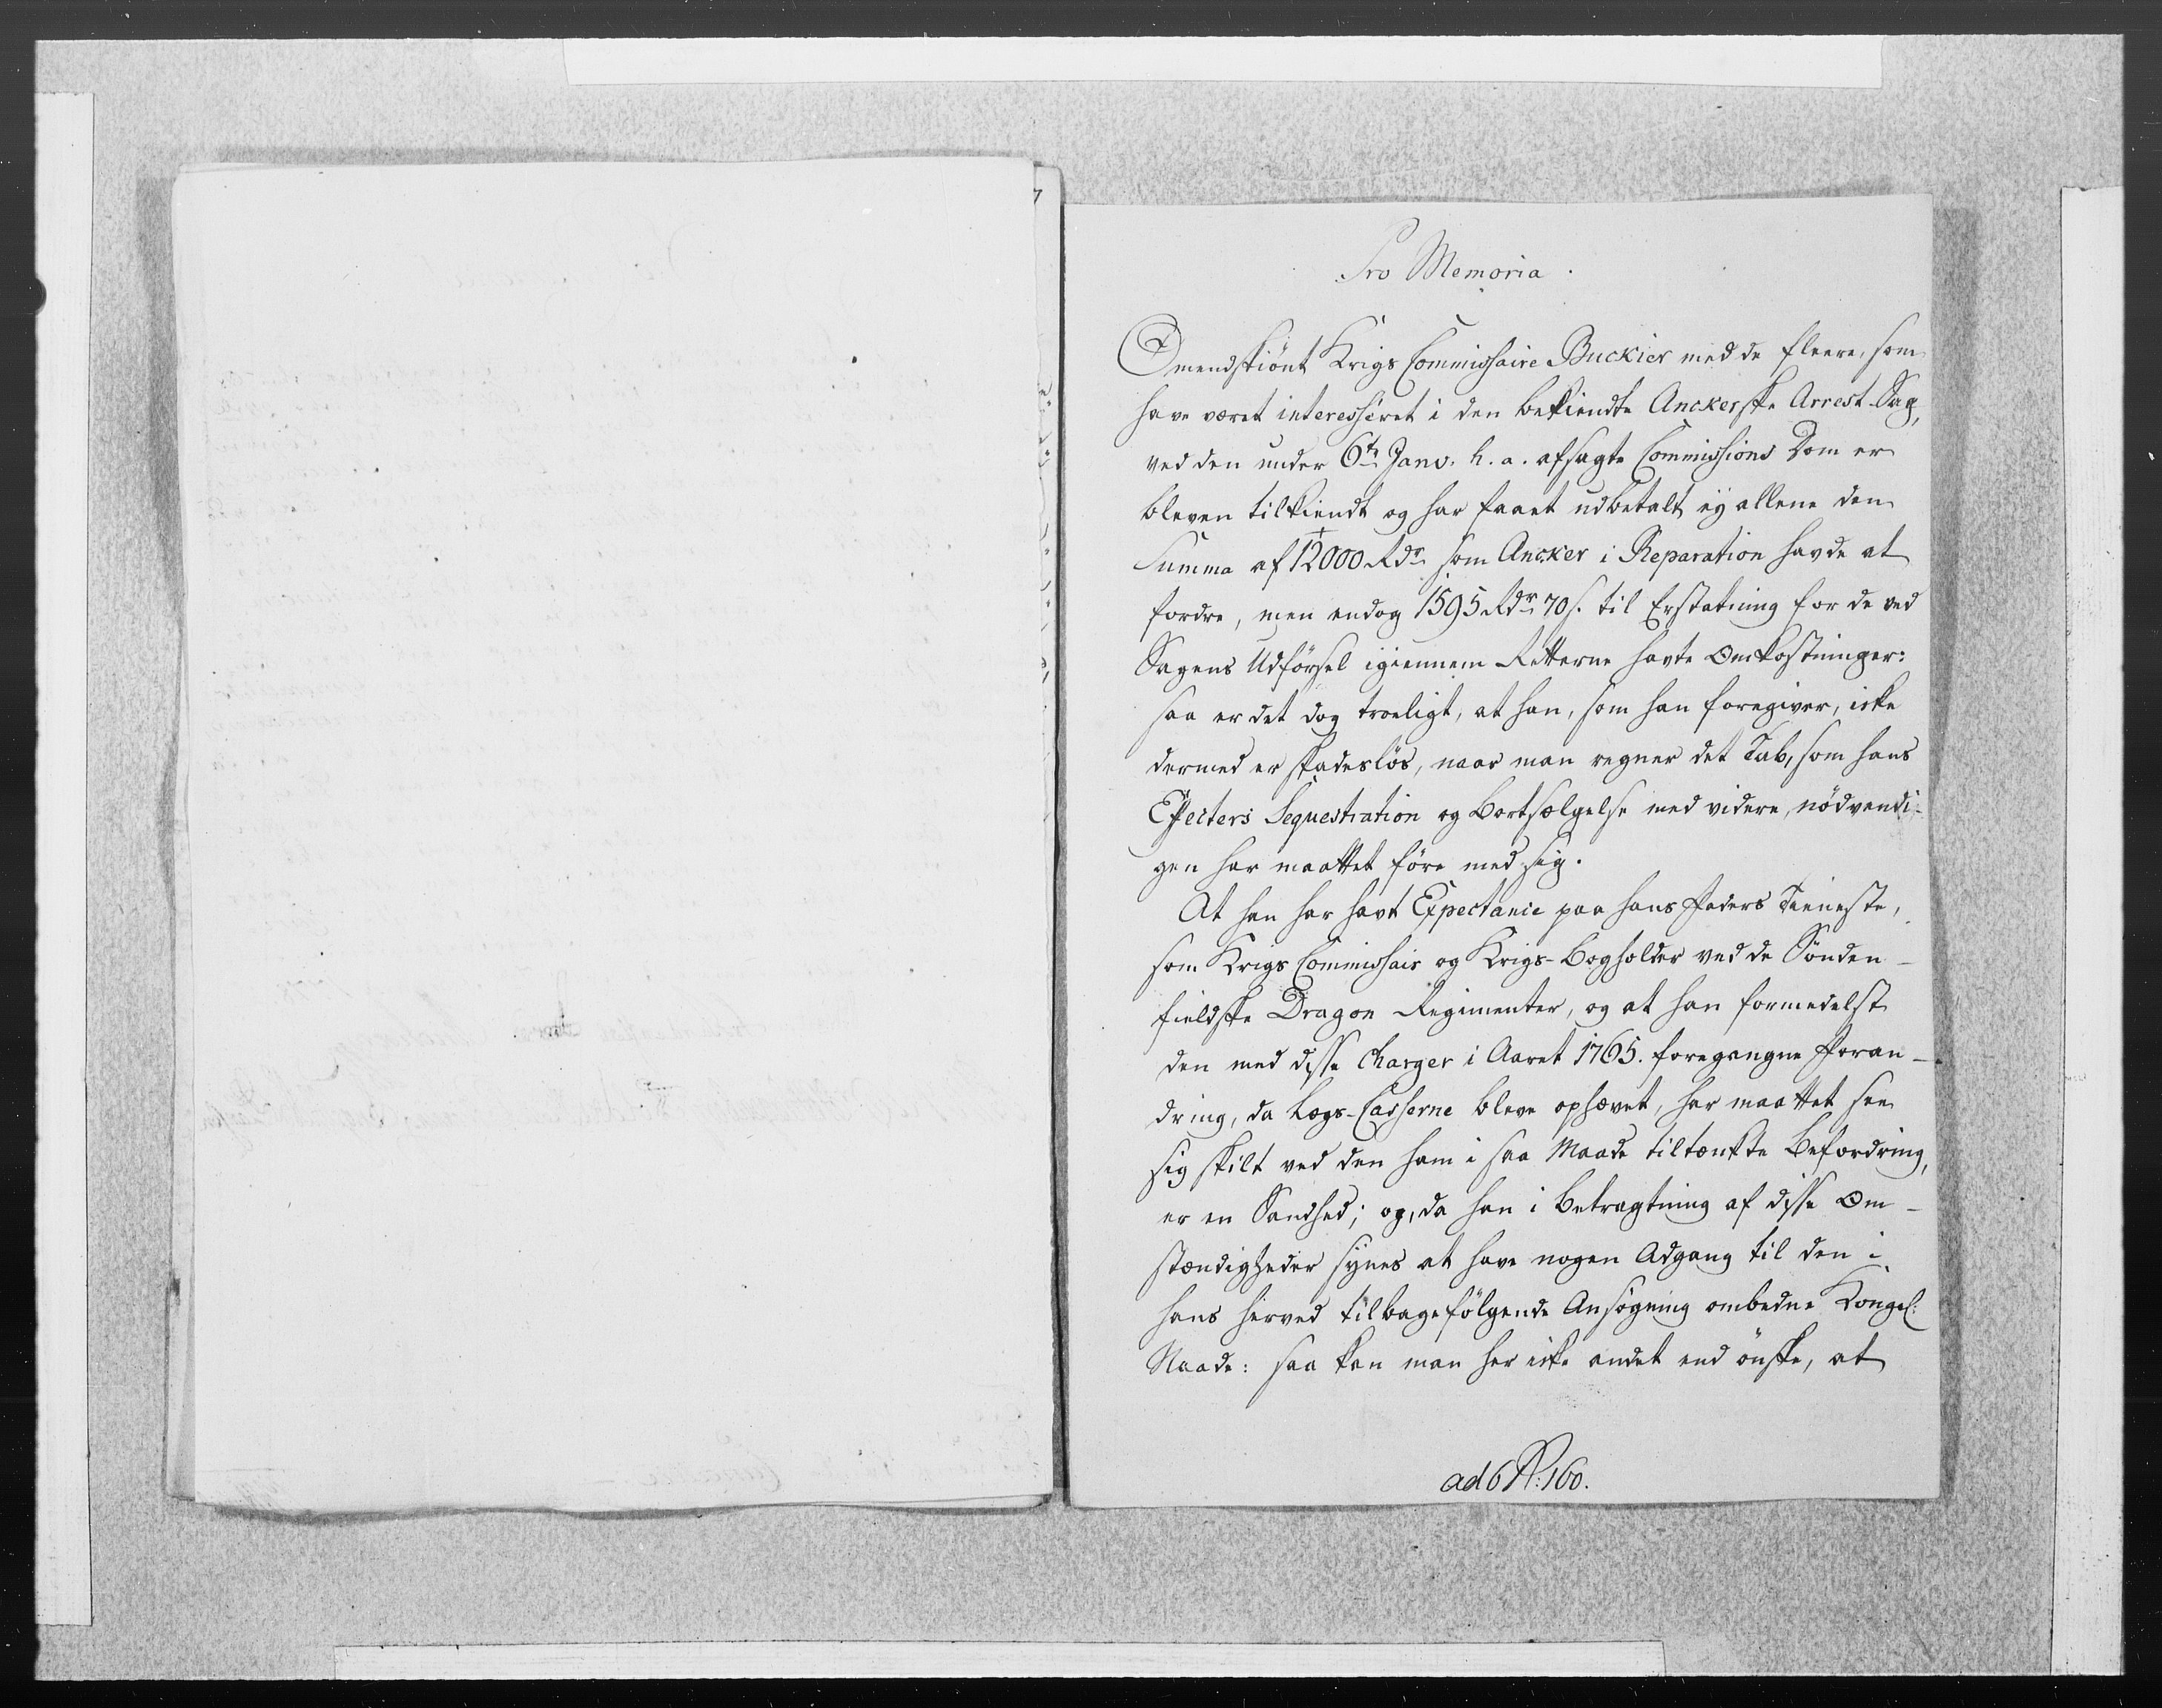 Pro Memoria.
Omendskiönt Krigs Commissaire Buckier med de fleere, som
have været interesseret i den bekiendte Anckerske Arrest-Sag,
ved den under 6te Janv. h. a. afsagte Commissions Dom er
bleven tilkiendt og har faaet udbetalt ey allene den
Summa af 12000 Rdr som Ancker i Reparation havde at
fordre, men endog 1595 Rdr 70 s. til Erstatning for de ved
Sagens Udførsel igiennem Retterne havte Omkostninger:
saa er det dog troeligt, at han, som han foregiver, icke
dermed er skadeslös, naar man regner det Tab, som hans
Effecters Sequestration og Bortsælgelse med videre, nödvendi-
gen har maattet före med sig.
At han har havt Expectance paa hans Faders Tieneste,
som Krigs Commissair og Krigs-Bogholder ved de Sönden-
fieldske Dragon Regimenter, og at han formedelst
den med disse Charger i Aaret 1765. foregangne Foran-
dring, da Lægs-Casserne bleve ophævet, har maattet see
sig skilt ved den ham i saa Maade tiltænkte Befordring,
er en Sandhed; og, da han i Betragtning af disse Om-
stændigheder synes at have nogen Adgang til den i
hans herved tilbagefölgende Ansögning ombedne Kongel:
Naade: saa kan man her icke andet end önske, at
ad 6 N: 160.